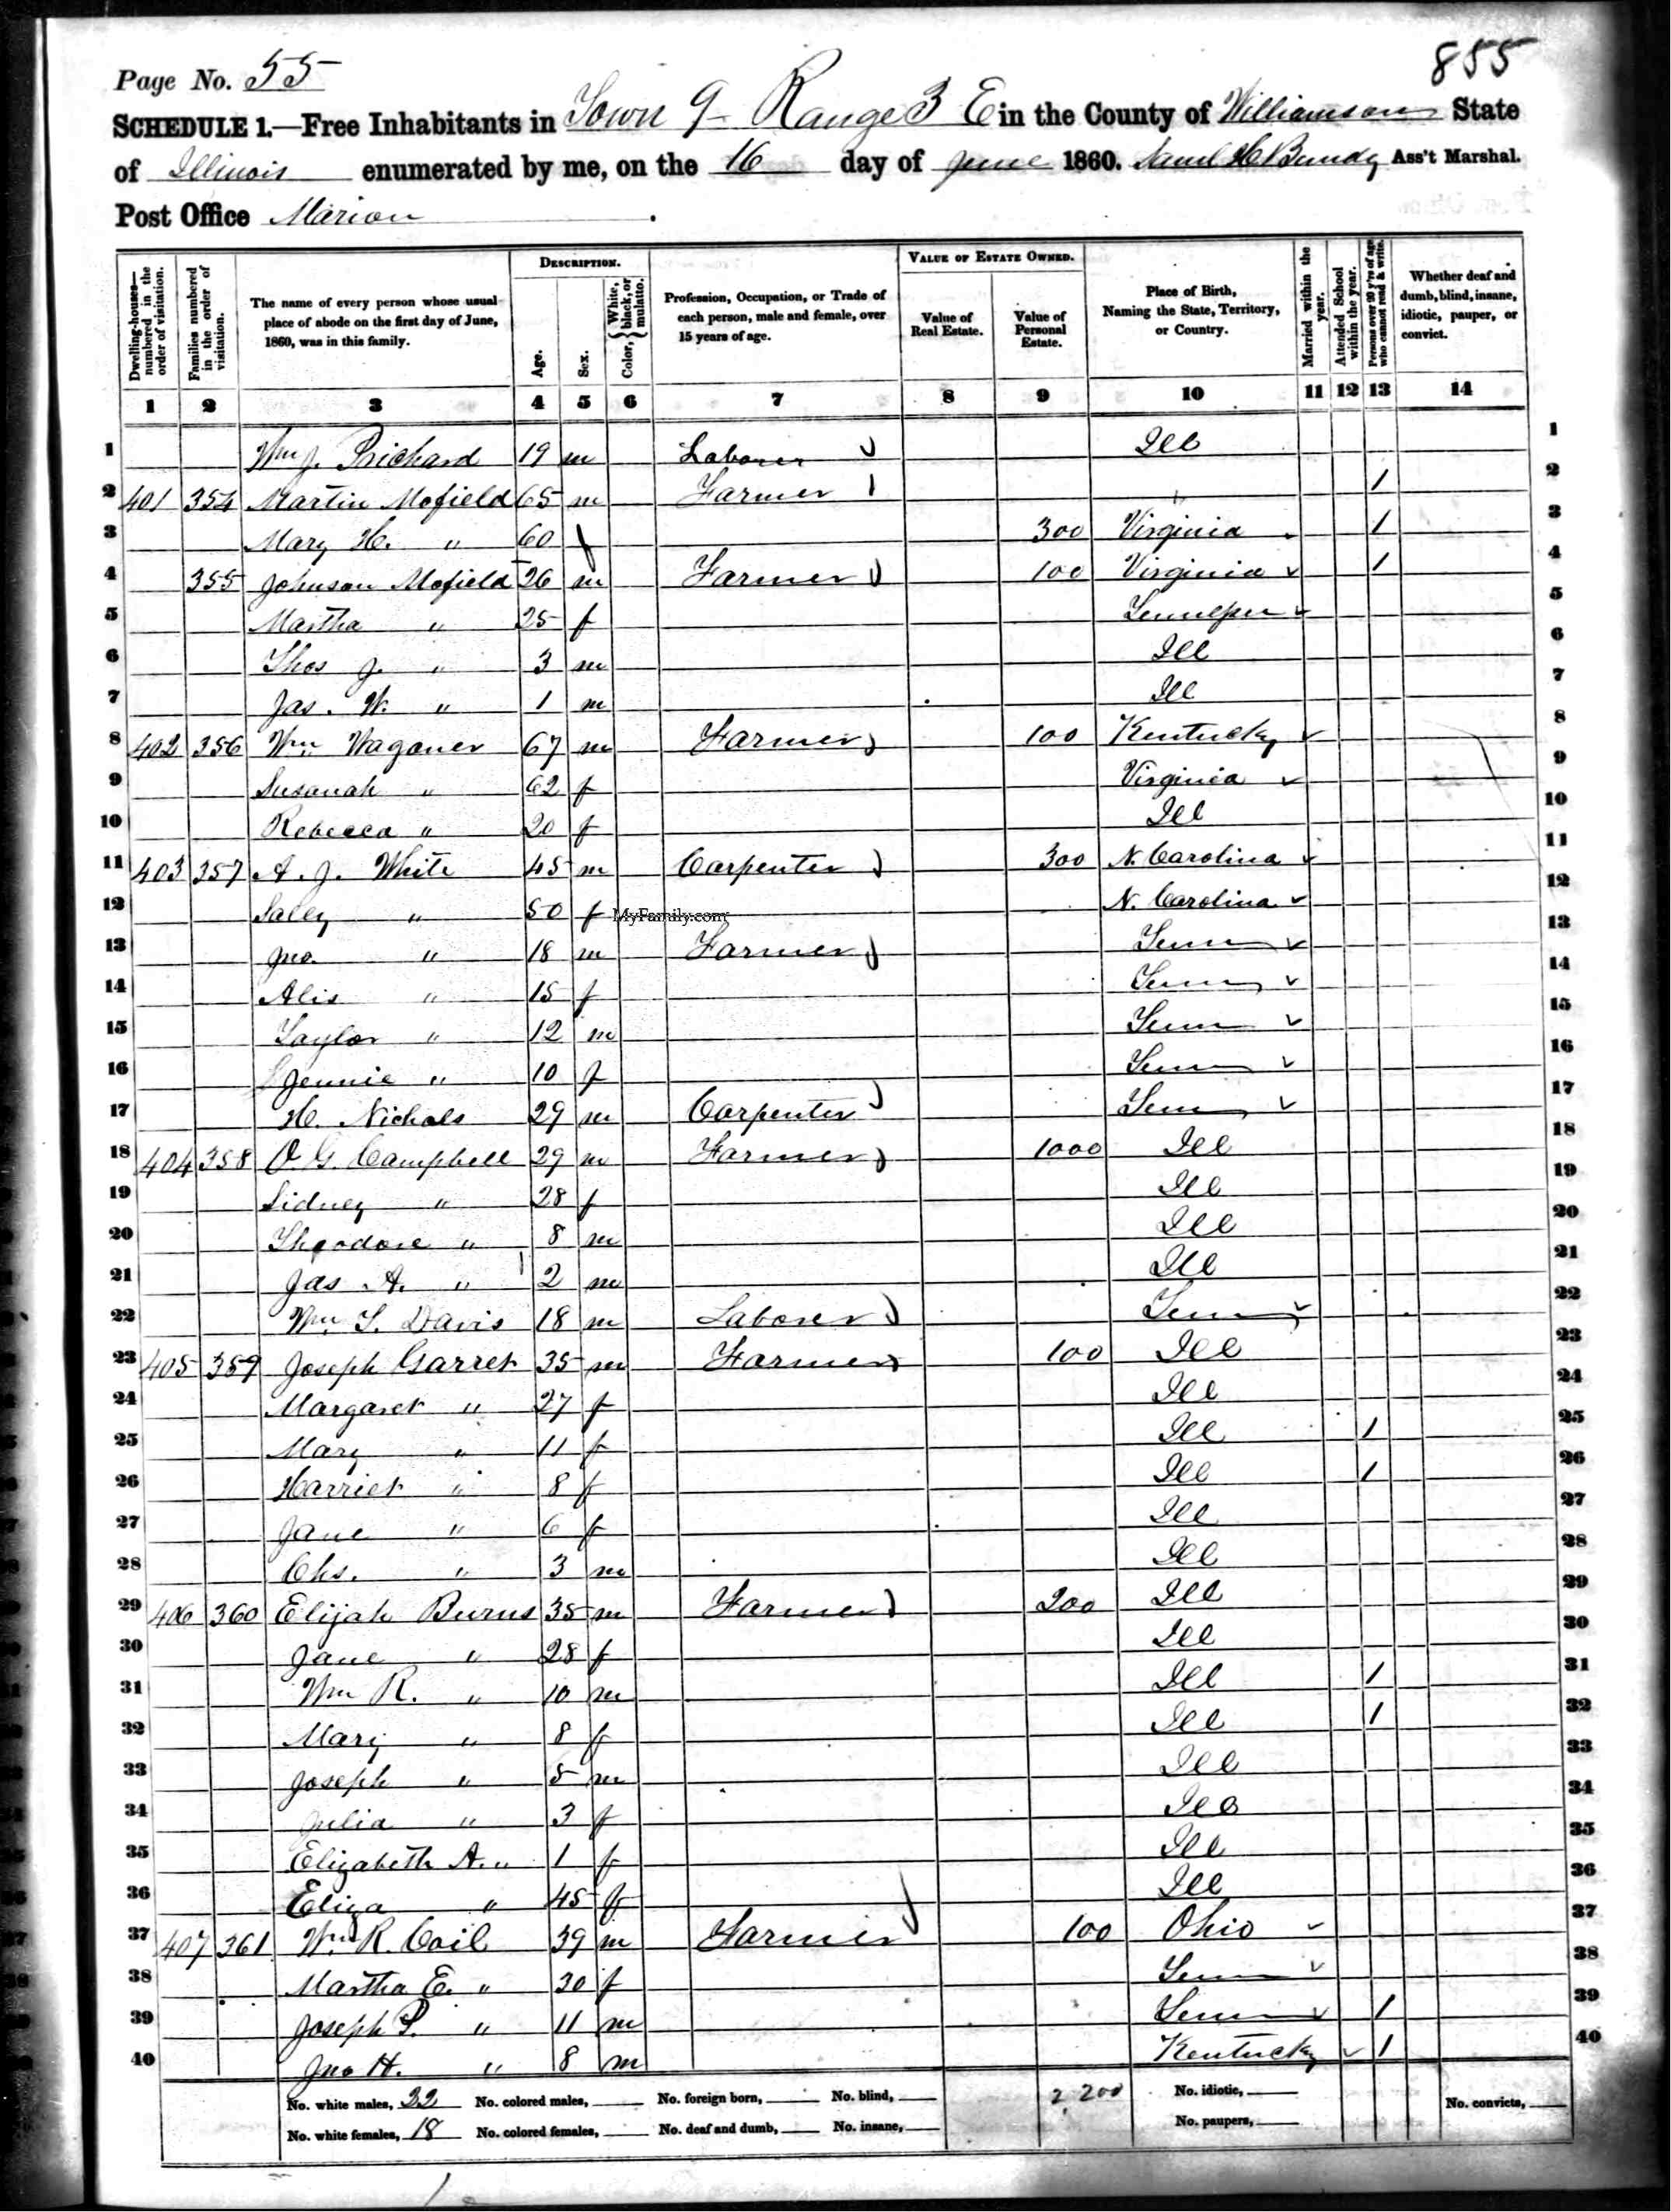 855
Page No. 55
SCHEDULE 1.—Free Inhabitants in Town 9 Range 3 E in the County of Williamson State
of Illinois enumerated by me, on the 16 day of June 1860. Saml H Bundy Ass't Marshal.
Post Office Marion.
Dwelling-houses—numbered in the order of visitation.
Families numbered in the order of visitation.
The name of every person whose usual place of abode on the first day of June, 1860, was in this family.
DESCRIPTION.
Age.
Sex.
Color, { White, black, or mulatto.
Profession, Occupation, or Trade of each person, male and female, over 15 years of age.
VALUE OF ESTATE OWNED.
Value of Real Estate.
Value of Personal Estate.
Place of Birth, Naming the State, Territory, or Country.
Married within the year.
Attended School within the year.
Persons over 20 y'rs of age who cannot read & write.
Whether deaf and dumb, blind, insane, idiotic, pauper, or convict.
1 2 3 4 5 6 7 8 9 10 11 12 13 14
1 Wm J. Prichard 19 m Laborer Ill 1
2 401 354 Martin Mofield 65 m Farmer " / 2
3 Mary H. " 60 f 300 Virginia / 3
4 355 Johnson Mofield 26 m Farmer 100 Virginia / 4
5 Martha " 25 f 5
6 Thos J. " 3 m Ill 6
7 Jas. W. " 1 m Ill 7
8 402 356 Wm Wagoner 67 m Farmer 100 Kentucky 8
9 Susanah " 62 f Virginia 9
10 Rebecca " 20 f Ill 10
11 403 357 A. J. White 45 m Carpenter 300 N. Carolina 11
12 Sally " 50 f MyFamily.com N. Carolina 12
13 Jno. " 18 m Farmer Tenn 13
14 Alis " 15 f Tenn 14
15 Taylor " 12 m Tenn 15
16 Jennie " 10 f Tenn 16
17 H. Nichols 29 m Carpenter Tenn 17
18 404 358 O. G. Campbell 29 m Farmer 1000 Ill 18
19 Sidney " 28 f Ill 19
20 Theodore " 8 m Ill 20
21 Jas A. " 2 m Ill 21
22 Wm. T. Davis 18 m Laborer Tenn 22
23 405 359 Joseph Garret 35 m Farmer 100 Ill 23
24 Margaret " 27 f Ill 24
25 Mary " 11 f Ill / 25
26 Harriet " 8 f Ill / 26
27 Jane " 6 f Ill 27
28 Chs. " 3 m Ill 28
29 406 360 Elijah Burns 35 m Farmer 200 Ill 29
30 Jane " 28 f Ill 30
31 Wm R. " 10 m Ill / 31
32 Mary " 8 f Ill / 32
33 Joseph " 5 m Ill 33
34 Julia " 3 f Ill 34
35 Elizabeth A. " 1 f Ill 35
36 Eliza " 45 f Ill 36
37 407 361 Wm R. Cail 39 m Farmer 100 Ohio 37
38 Martha E. " 30 f Tenn 38
39 Joseph P. " 11 m Tenn / 39
40 Jno H. " 8 m Kentucky / 40
No. white males, 22 No. colored males, No. foreign born, No. blind, 2,200 No. idiotic, No. convicts,
No. white females, 18 No. colored females, No. deaf and dumb, No. insane, No. paupers,